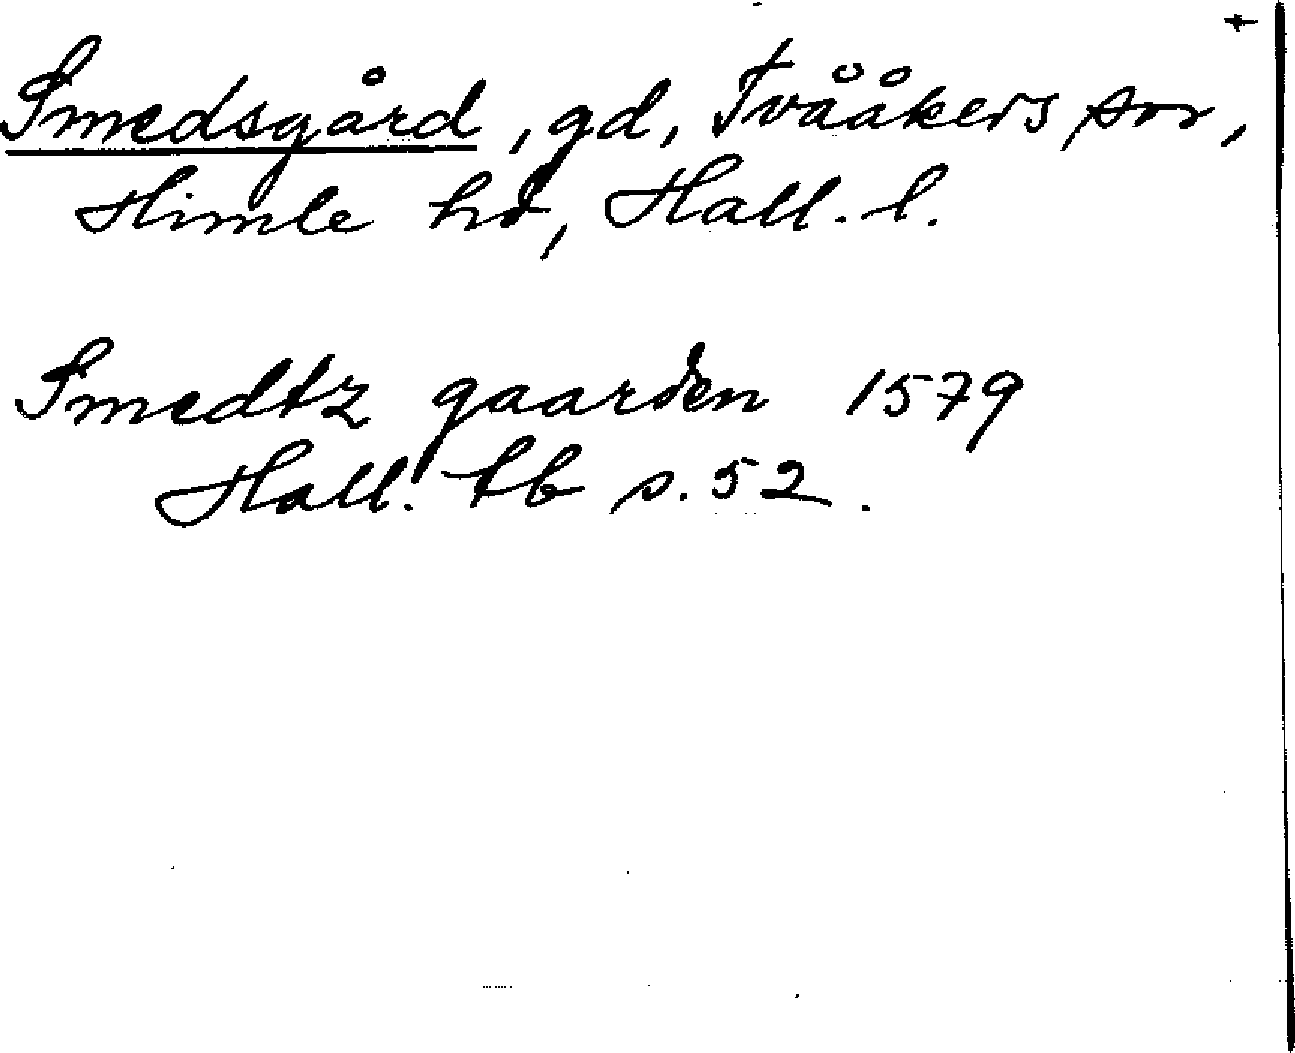 +
Smedsgård, gd, Tvååkers sn,
Himle hd, Hall. l.
Smedtz gaarden 1579
Hall. tb s. 52.